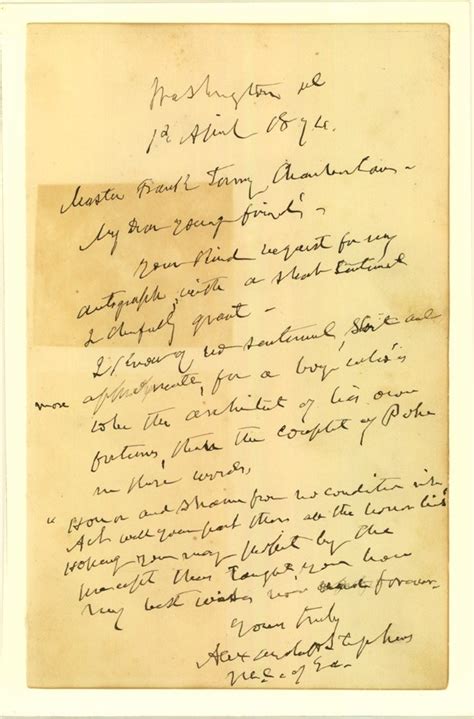 Washington DC
1st April 1874.
Master Frank Chamberlain -
My Dear young friend -
Your kind request for my
autograph with a short sentiment
I cheerfully grant -
I know of no sentiment, short and
more appropriate, for a boy who is
to be the architect of his own
fortunes, than the couplet of Pope
in these words,
"Honor and shame from no condition rise
Act well your part there all the honor lies"
Hoping you may profit by the
precept thus taught you have
my best wishes now and forever.
Yours truly
Alexander H Stephens
of Ga.